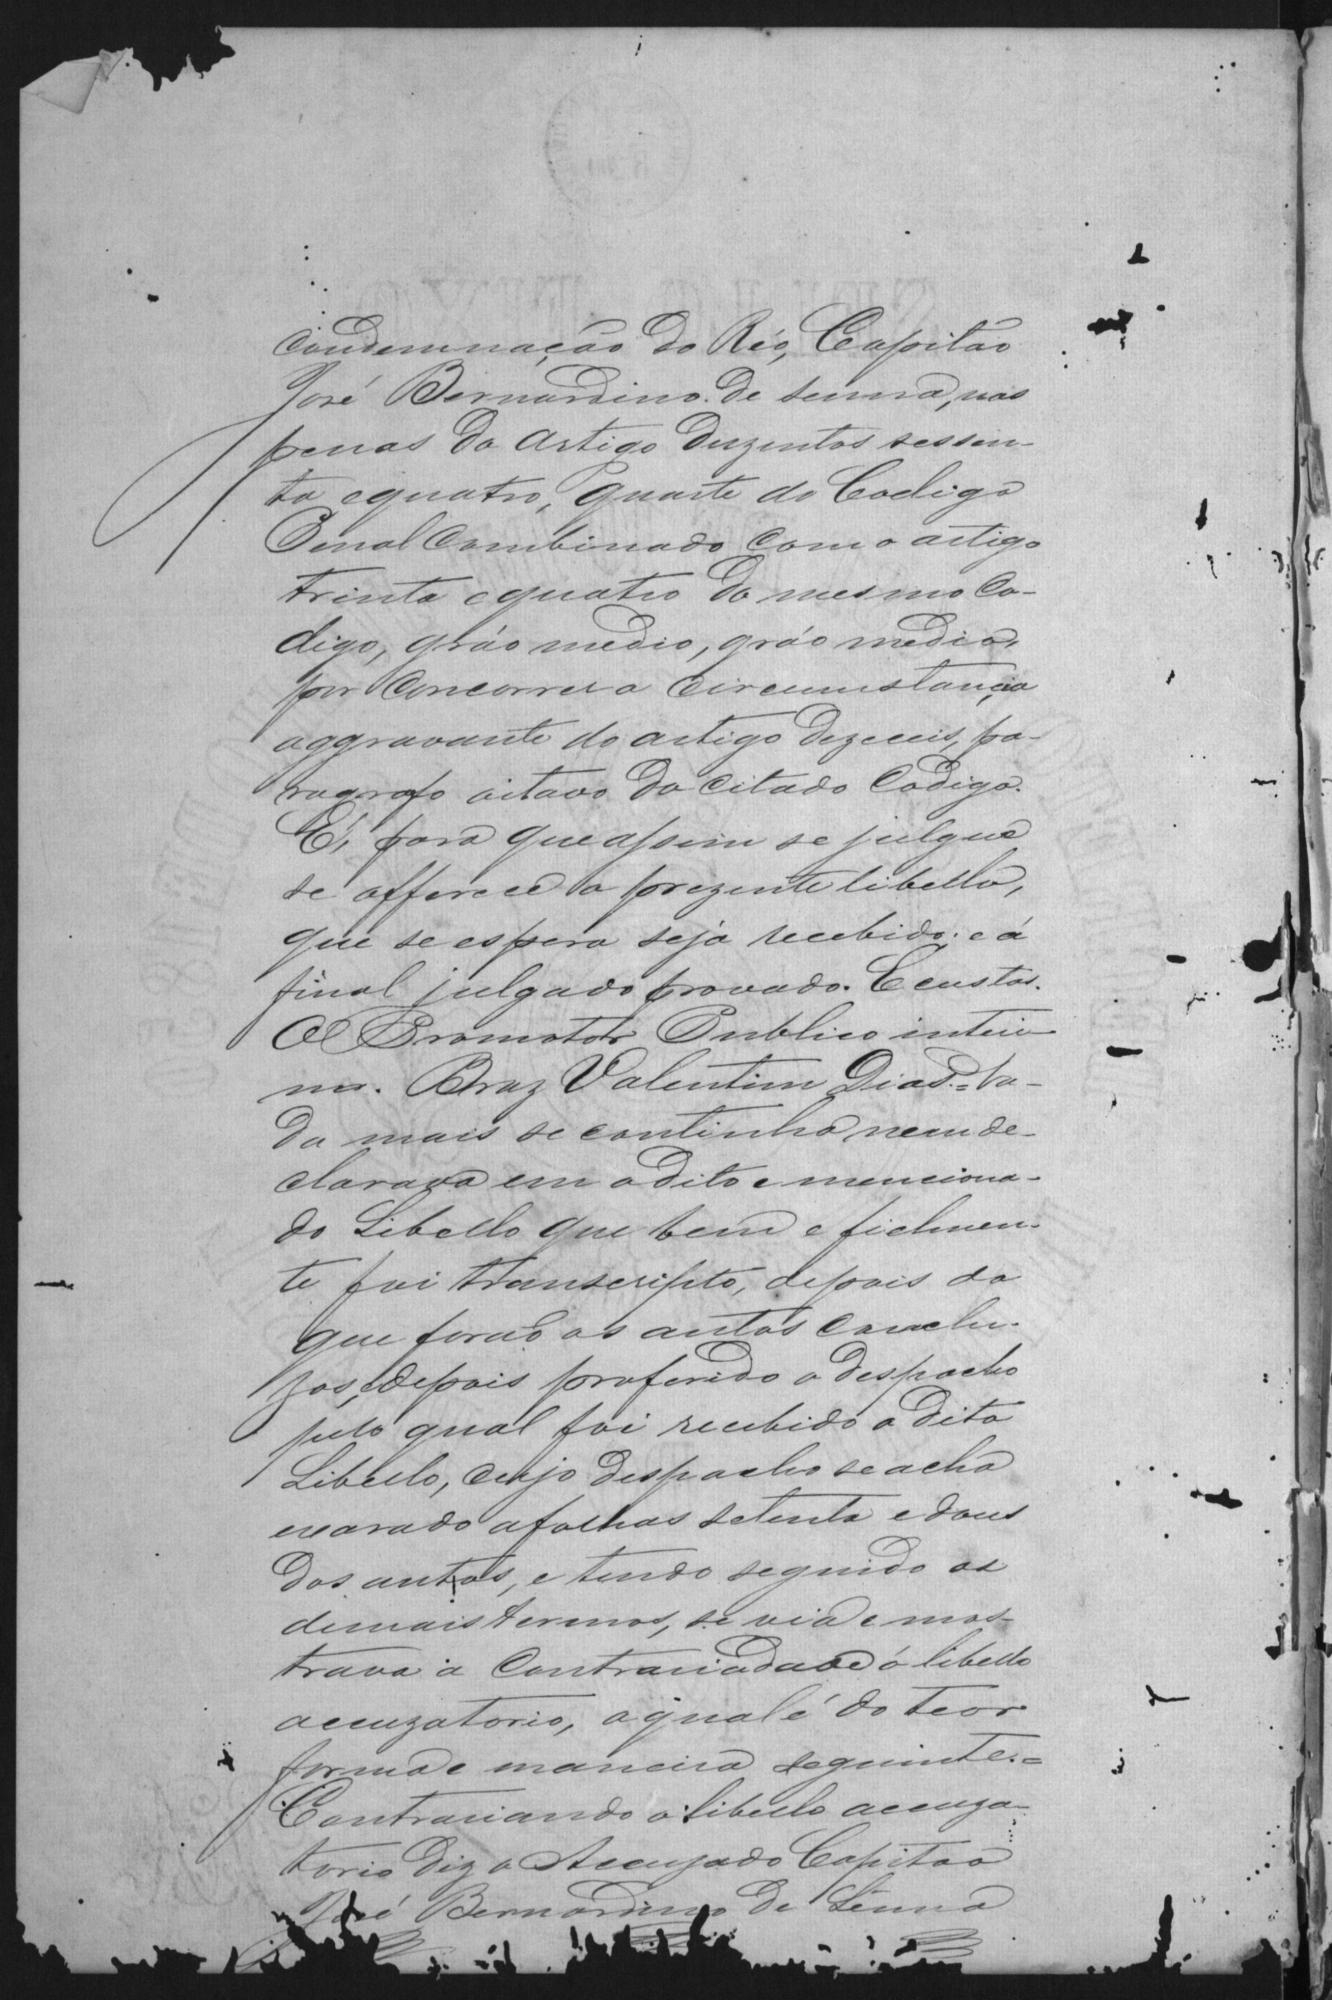 condemnação do Réo, Capitão
José Bernardino de Senna, nas
penas do Artigo duzentos sessen-
ta e quatro, quarte do Codigo
Penal Combinado com o artigo
trinta e quatro do mesmo Co-
digo, gráo medio, gráo medio,
por Concorrer a circumstancia
aggravante do artigo dezeceis, pa-
ragrafo oitavo do citado Codigo.
E, para que assim se julgue
se offerece o prezente libello,
que se espera seja recebido e á
final julgado provado. E custas.
O Promotor Publico interi-
no. Braz Valentim Dias.= Na-
da mais se continha, nem de-
clarava em o dito e menciona-
do Libello que bem e fielmen-
te foi transcripto, depois do
que forão os autos conclu-
zos, e depois proferido o despacho
pelo qual foi recebido o dito
Libello, cujo despacho se acha
exarado a folhas setenta e dous
dos autos, e tendo seguido os
demais termos, se via e mos-
trava a Contrariedade ó libello
accuzatorio, a qual é do teor
forma e maneira seguinte.=
Contrariando o libello accuza-
torio diz o Accuzado Capitão
José Bernardino de Senna